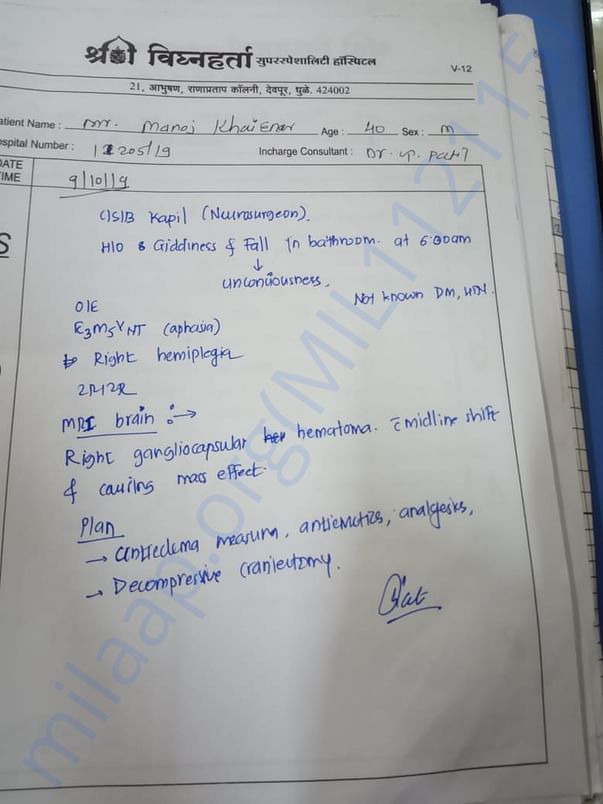 श्री विघ्नहर्ता सुपरस्पेशालिटी हॉस्पिटल
V-12
21, आभुषण, राणाप्रताप कॉलनी, देवपूर, धुळे. 424002
atient Name : mr. Manoj Khairnar Age : 40 Sex : m
ospital Number : 1205/19 Incharge Consultant : Dr. up. patil
DATE
TIME
9/10/19
S
C/S/B Kapil (Neurosurgeon).
H/O Giddiness & Fall in bathroom. at 6:00am
↓
unconciousness.
Not known DM, HTN.
O/E
E3M5VNT (aphasia)
Right hemiplegia
MRI brain :→
Right gangliocapsular hematoma. c̄ midline shift
& causing mass effect.
Plan
→ antiedema measures, antiemetics, analgesics,
→ Decompressive craniectomy.
milaap.org(MIL112115)